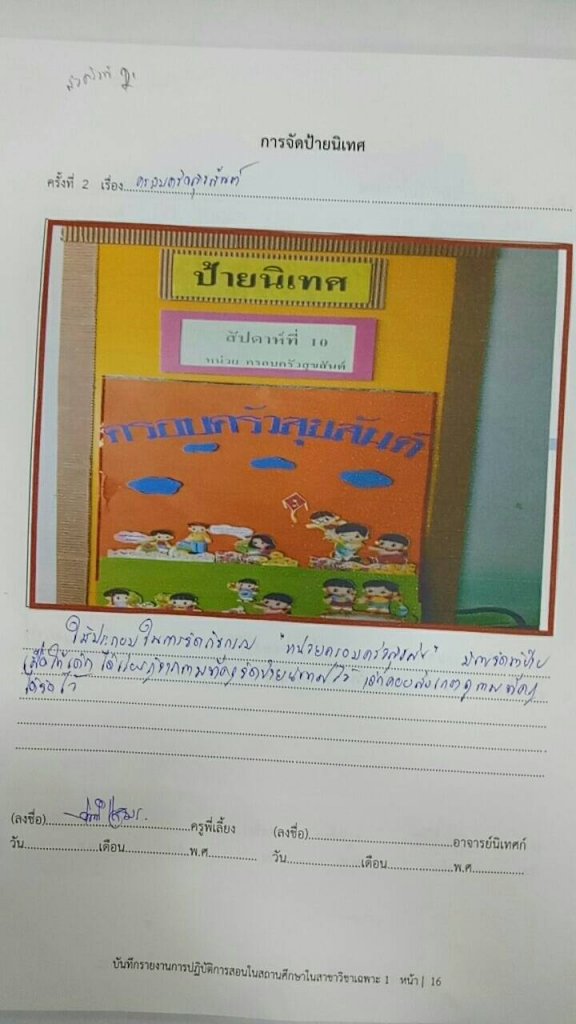 การจัดป้ายนิเทศ
ครั้งที่ 2 เรื่อง ครอบครัวสุขสันต์
ป้ายนิเทศ
สัปดาห์ที่ 10
หน่วย ครอบครัวสุขสันต์
ครอบครัวสุขสันต์
ใช้ประกอบในการจัดกิจกรรม "หน่วยครอบครัวสุขสันต์" มีการจัดทำป้าย
เพื่อให้เด็ก ได้เรียนรู้จากภาพที่ครูจัดป้ายนิเทศไว้ เด็กคอยสังเกตดูภาพที่ครู
ได้จัดไว้
(ลงชื่อ) ครูพี่เลี้ยง (ลงชื่อ) อาจารย์นิเทศก์
วัน เดือน พ.ศ. วัน เดือน พ.ศ.
บันทึกรายงานการปฏิบัติการสอนในสถานศึกษาในสาขาวิชาเฉพาะ 1 หน้า | 16